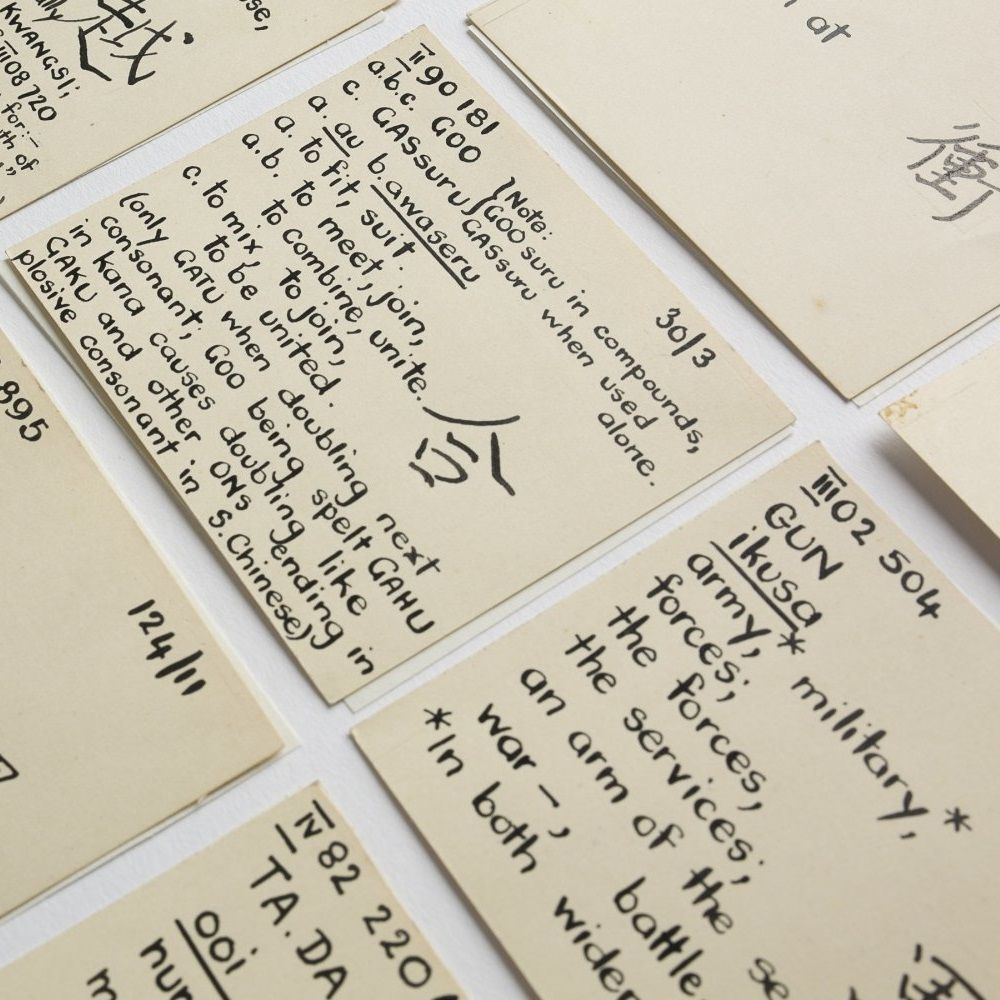 越
KWANGSI;
III 08 720
for:-
th of
at
衝
II 90 181
a.b.c. GOO
c. GASSURU
}Note:
GOO suru in compounds,
GASSURU when used
alone.
a. au b. awaseru
a. to fit, suit.
a.b. to meet, join,
to combine, unite.
c. to mix, to join,
to be united.
(only GATU when doubling next
consonant; GOO being spelt GAHU
in kana causes doubling like
GAKU and other ONs ending in
plosive consonant in S. Chinese)
30/3
合
895
124/11
III 02 504
GUN
ikusa*
army, military,*
forces;
the forces,
the services;
an arm of the
war-, battle
*In both wider
軍
IV 82 220
TA. DA
ooi